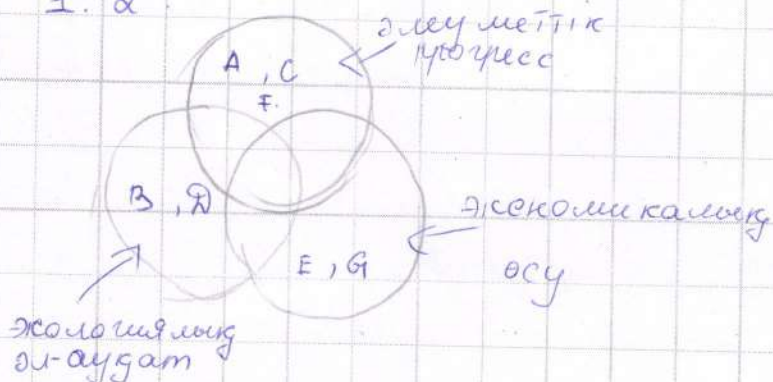 1. 2
әлеуметтік
прогресс
A , C
F.
B , D
экономикалық
өсу
E , G
экологиялық
әл-ауқат